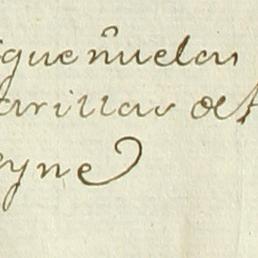 igueñuelas
arillas det
eyne